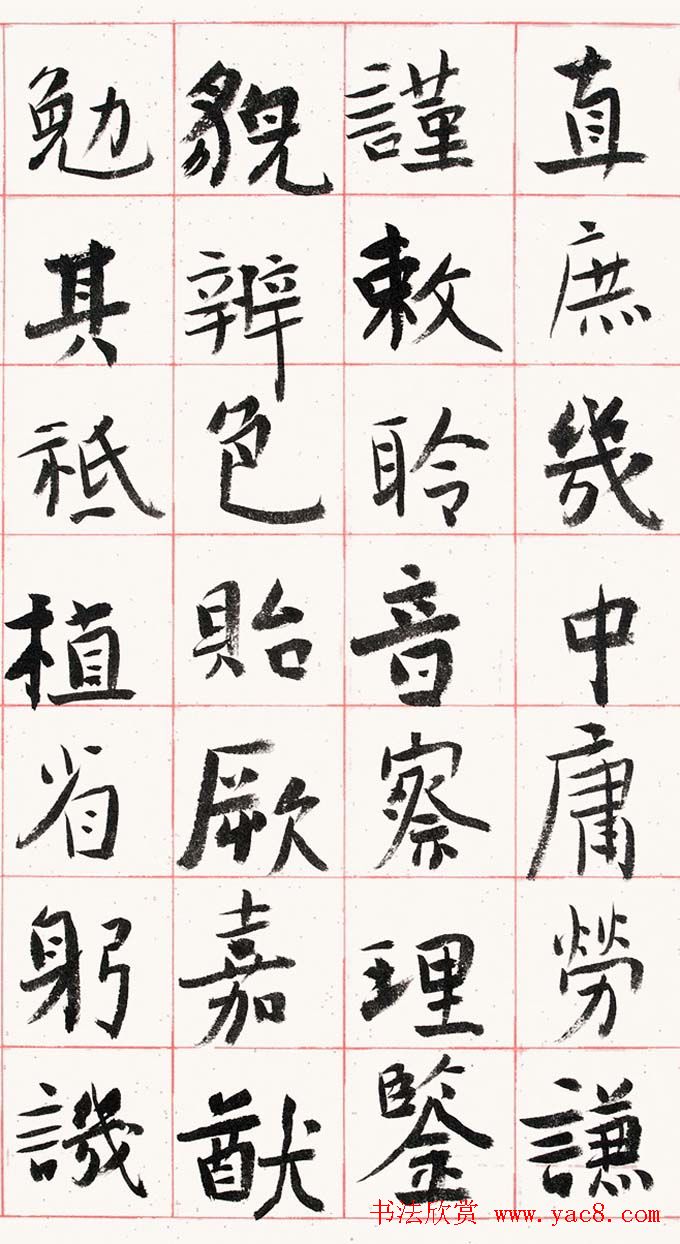 直庶幾中庸勞謙
謹敕聆音察理鑒
貌辨色貽厥嘉猷
勉其祗植省躬譏
书法欣赏 www.yac8.com